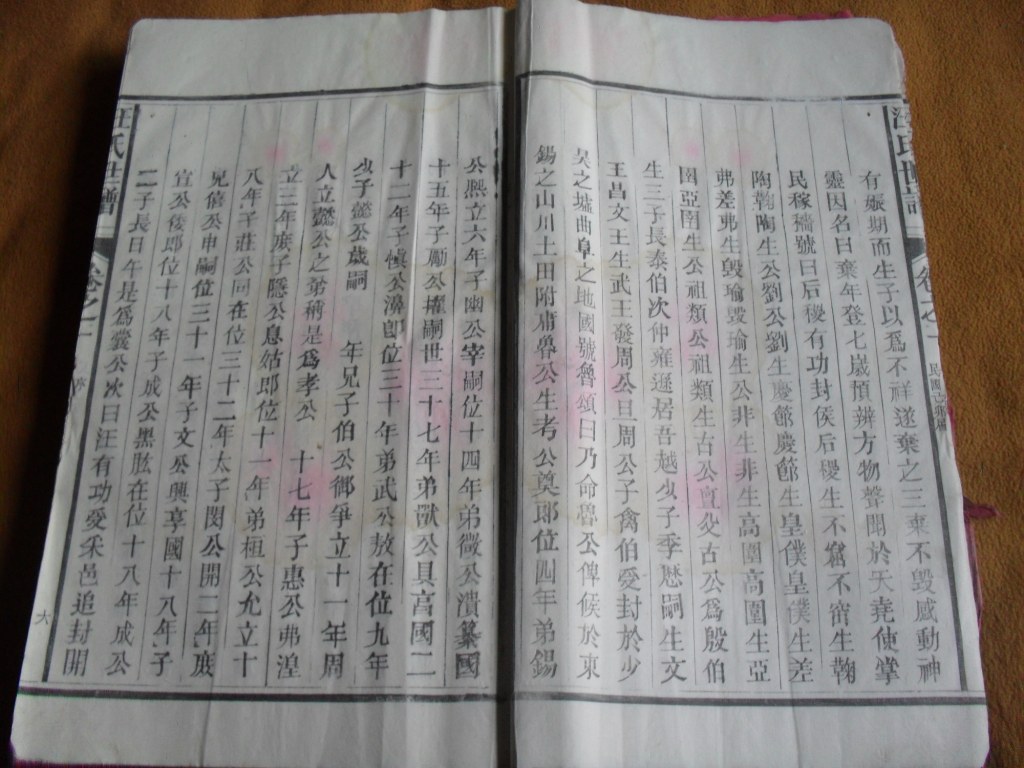 有娠期而生子以爲不祥遂棄之三棄不毀感動神
靈因名曰棄年登七歲預辨方物聲聞於天堯使掌
民稼穡號曰后稷有功封侯后稷生不窋不窋生鞠
陶鞠陶生公劉公劉生慶節慶節生皇僕皇僕生差
弗差弗生毀瑜毀瑜生公非生非生高圉高圉生亞
圉亞圉生公祖類公祖類生古公亶父古公爲殷伯
生三子長泰伯次仲雍遜居吾越少子季歷嗣生文
王昌文王生武王發周公旦周公子禽伯受封於少
昊之墟曲阜之地國號魯頌曰乃命魯公俾候於東
錫之山川土田附庸魯公生考公奠郎位四年弟錫
公熙立六年子幽公宰嗣位十四年弟微公潰纂國
十五年子厲公擢嗣世三十七年弟獻公具富國二
十二年子慎公濞卽位三十年弟武公敖在位九年
少子懿公歲嗣 年兄子伯公御爭立十一年周
人立懿公之弟稱是爲孝公 十七年子惠公弗湟
立三年庶子隱公息姑郎位十一年弟桓公允立十
八年子莊公同在位三十二年太子閔公開二年庶
兄僖公申嗣位三十一年子文公興享國十八年子
宣公倭郎位十八年子成公黑肱在位十八年成公
二子長曰午是爲襄公次曰汪有功受采邑追封開
汪氏世譜
卷之一
六